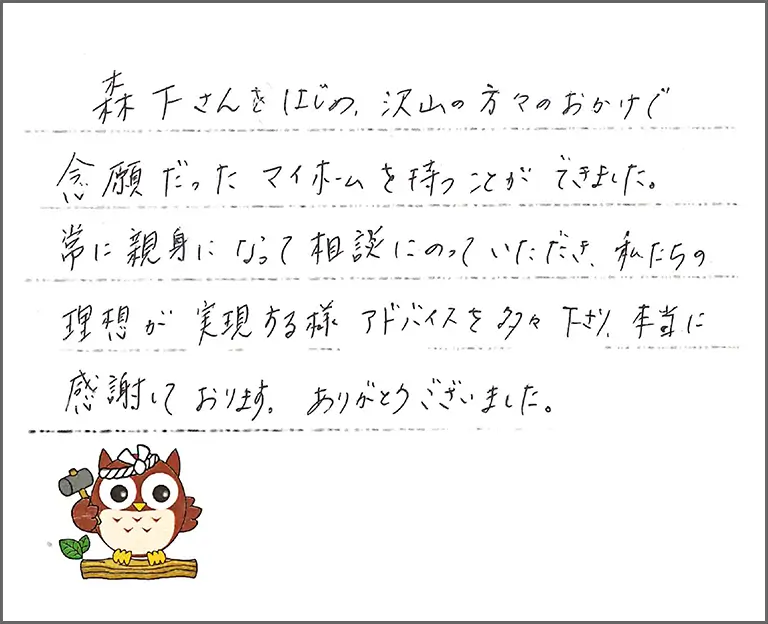 森下さんをはじめ、沢山の方々のおかげで
念願だったマイホームを持つことができました。
常に親身になって相談にのっていただき、私たちの
理想が実現する様アドバイスを多々下さり、本当に
感謝しております。ありがとうございました。